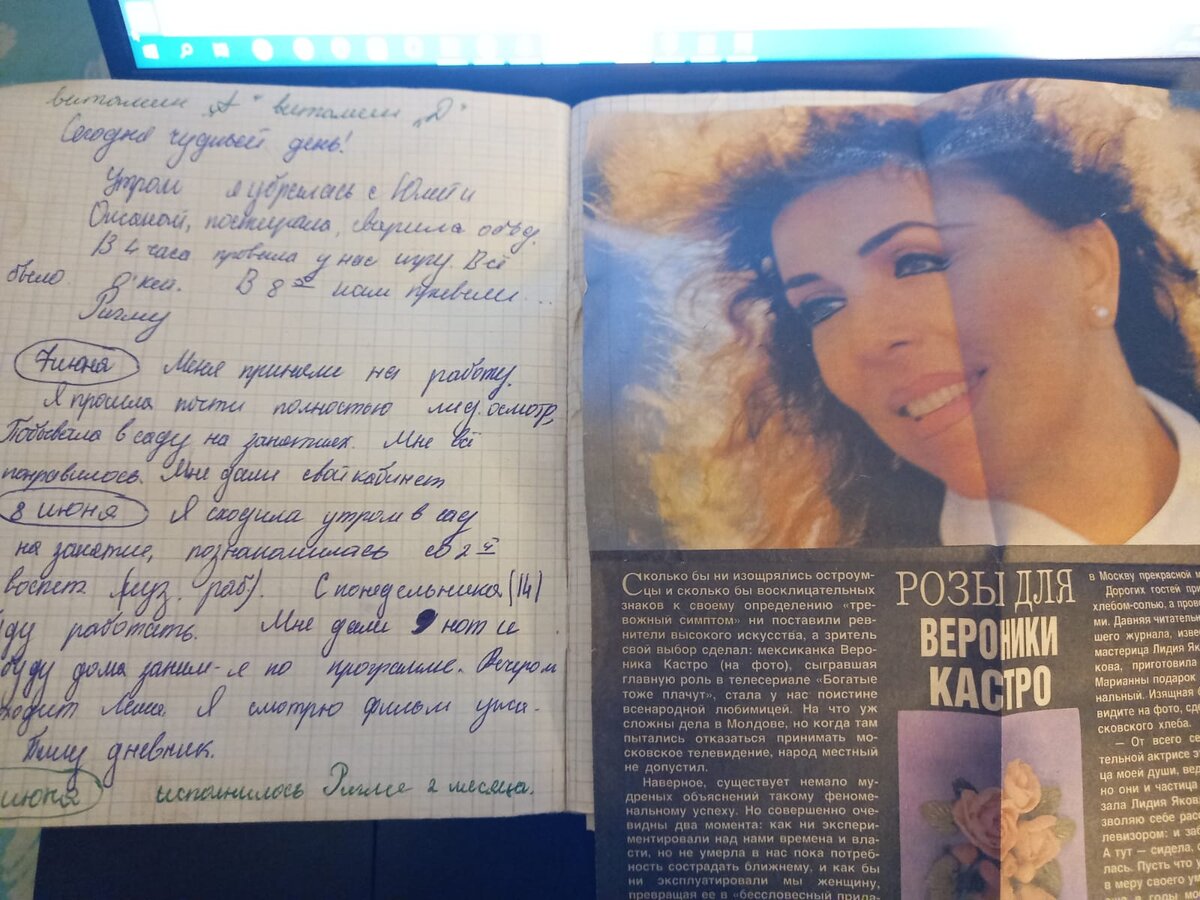 витамин „А" витамин „D"
Сегодня чудный день!
Утром я убралась с Юлей и
Оксаной, постирала, сварила обед.
В 4 часа провела у нас игру. Всё
было о'кей. В 8 00 нам привели...
Ригму
7 июня Меня приняли на работу.
Я прошла почти полностью мед. осмотр,
Побывала в саду на занятиях. Мне всё
понравилось. Мне дали свой кабинет
8 июня Я сходила утром в сад
на занятие, познакомилась со 2 й
воспит (муз. раб). С понедельника (14)
ду работать. Мне дали 9 нот и
буду дома заним-я по программе. Вечером
ходит Леша. Я смотрю фильм ужа-
Пишу дневник.
июня исполнилось Ригме 2 месяца.
Сколько бы ни изощрялись остроум-
цы и сколько бы восклицательных
знаков к своему определению «тре-
вожный симптом» ни поставили рев-
нители высокого искусства, а зритель
свой выбор сделал: мексиканка Веро-
ника Кастро (на фото), сыгравшая
главную роль в телесериале «Богатые
тоже плачут», стала у нас поистине
всенародной любимицей. На что уж
сложны дела в Молдове, но когда там
пытались отказаться принимать мо-
сковское телевидение, народ местный
не допустил.
Наверное, существует немало му-
дреных объяснений такому феноме-
нальному успеху. Но совершенно оче-
видны два момента: как ни экспери-
ментировали над нами времена и вла-
сти, но не умерла в нас пока потреб-
ность сострадать ближнему, и как бы
ни эксплуатировали мы женщину,
превращая ее в «бессловесный прида-
РОЗЫ ДЛЯ
ВЕРОНИКИ
КАСТРО
в Москву прекрасной м
Дорогих гостей при
хлебом-солью, а про
ми. Давняя читатель
шего журнала, изве
мастерица Лидия Як
кова, приготовила
Марианны подарок
нальный. Изящная
видите на фото, сде
сковского хлеба.
— От всего се
тельной актрисе э
ца моей души, вед
но они и частица
зала Лидия Яков
зволяю себе расс
левизором: и заб
А тут — сидела, с
лась. Пусть что у
в меру своего ум